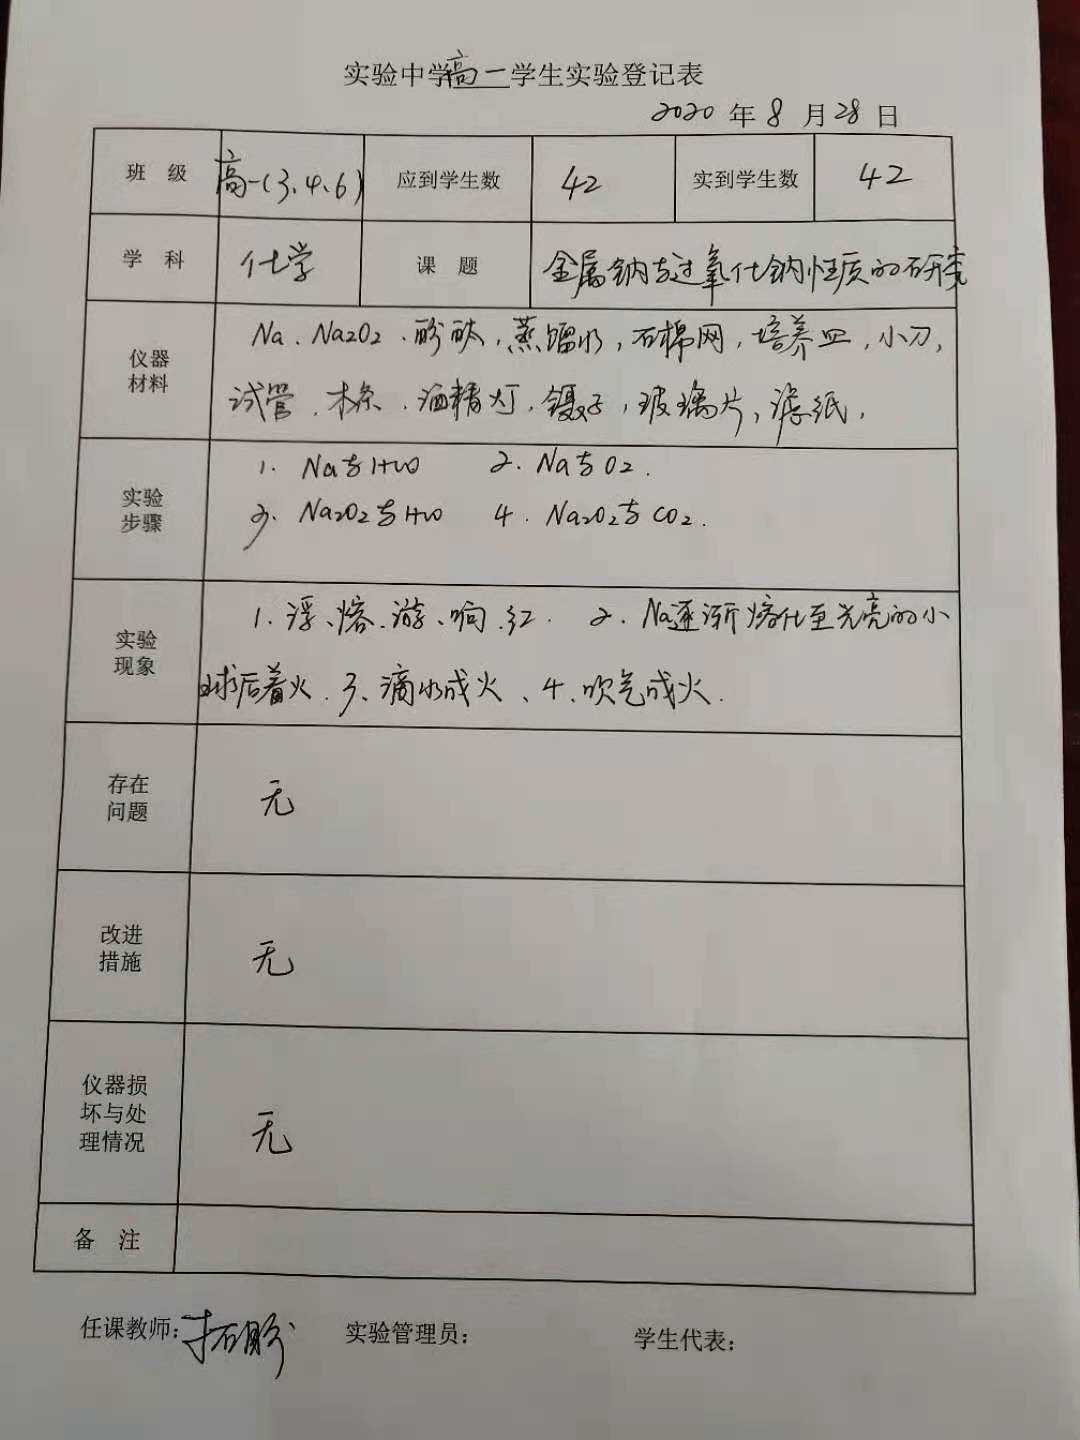 实验中学高一学生实验登记表
2020年8月28日
班 级 高一(3、4、6) 应到学生数 42 实到学生数 42
学 科 化学 课 题 金属钠与过氧化钠性质的研究
仪器材料 Na、Na2O2、酚酞，蒸馏水，石棉网，培养皿，小刀，
试管、木条、酒精灯，镊子，玻璃片，滤纸，
实验步骤 1. Na与H2O 2. Na与O2.
3. Na2O2与H2O 4. Na2O2与CO2.
实验现象 1. 浮、熔、游、响、红. 2. Na逐渐熔化至光亮的小
球后着火. 3、滴水成火、4、吹气成火.
存在问题 无
改进措施 无
仪器损坏与处理情况 无
备 注
任课教师: 实验管理员: 学生代表: